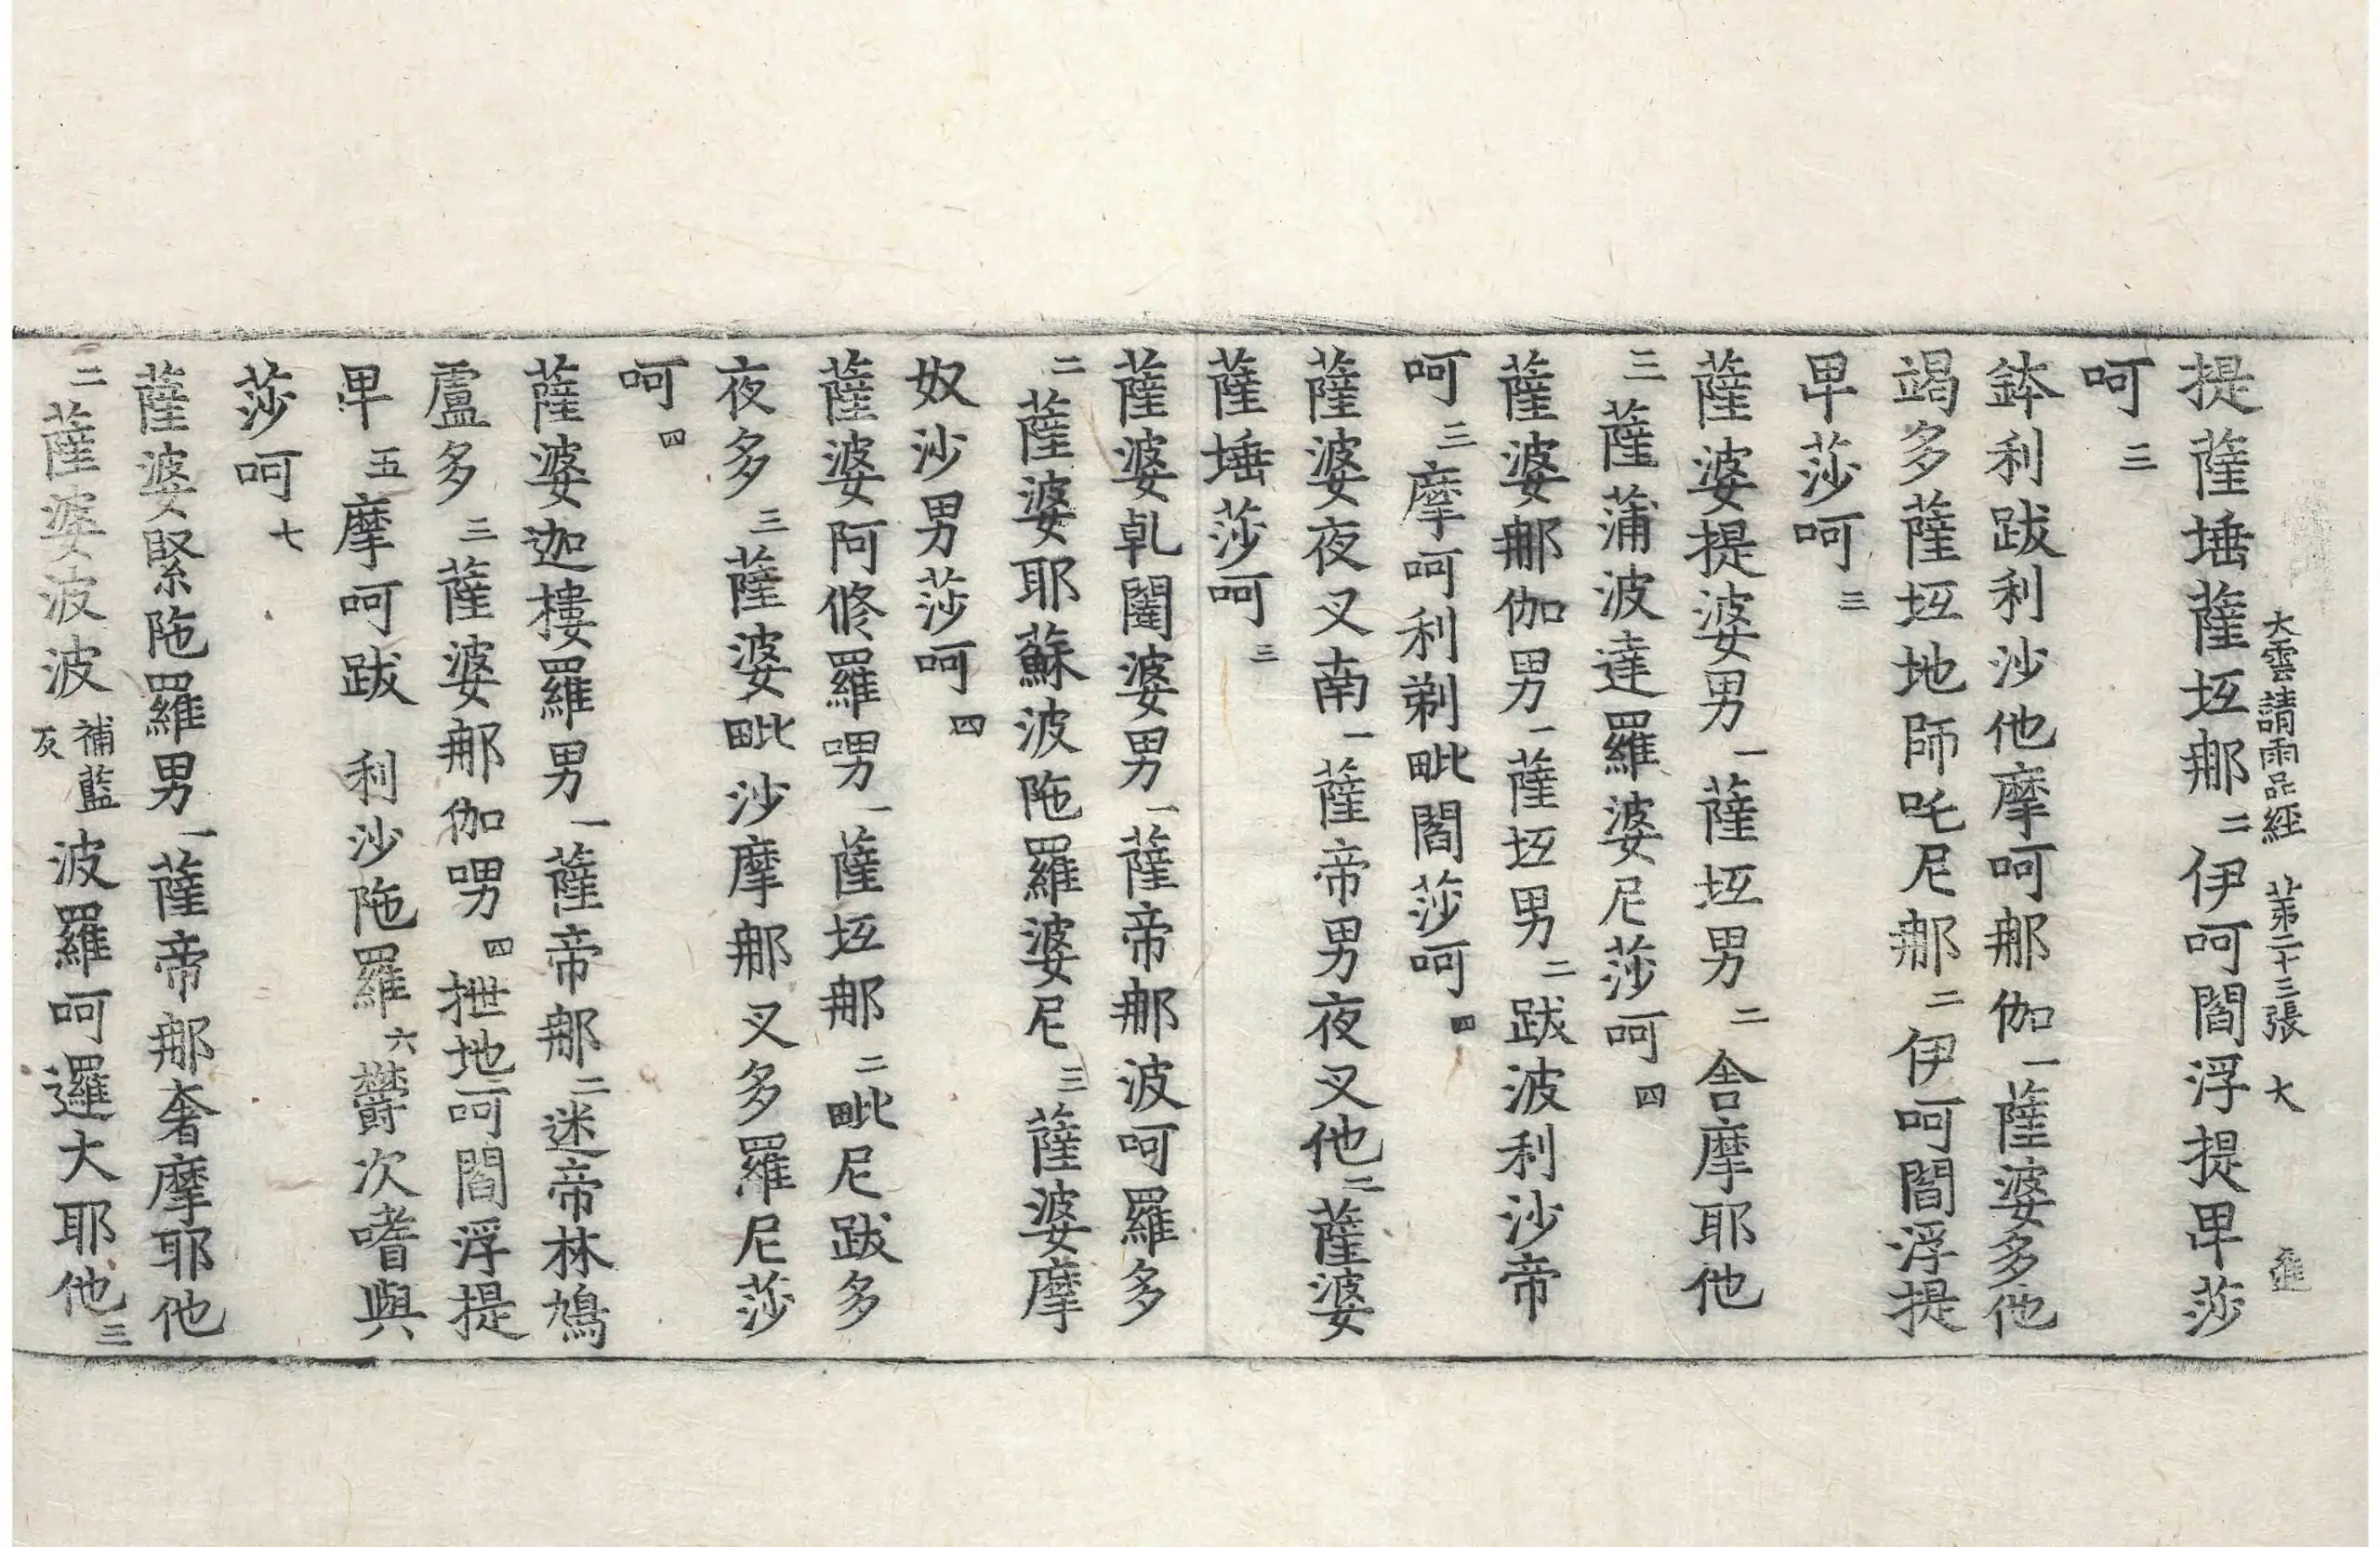 大雲請雨品經 第二十三張 大 進
提薩埵薩坘那二伊呵閻浮提卑莎
呵三
鉢利跋利沙他摩呵那伽一薩婆多他
竭多薩坘地師吒尼那二伊呵閻浮提
卑莎呵三
薩婆提婆男一薩坘男二舍摩耶他
三薩蒲波達羅婆尼莎呵四
薩婆那伽男一薩坘男二跋波利沙帝
呵三摩呵利剃毗閻莎呵四
薩婆夜叉南一薩帝男夜叉他二薩婆
薩埵莎呵三
薩婆乹闥婆男一薩帝那波呵羅多
二薩婆耶蘇波陁羅婆尼三薩婆摩
奴沙男莎呵四
薩婆阿修羅喟一薩坘那二毗尼跋多
夜多三薩婆毗沙摩那叉多羅尼莎
呵四
薩婆迦樓羅男一薩帝那二迷帝林鳩
盧多三薩婆那伽喟四抴地呵閻浮提
卑五摩呵跋利沙陁羅六欝次嗜與
莎呵七
薩婆緊陁羅男一薩帝那奢摩耶他
二薩婆波波補藍反波羅呵邏大耶他三